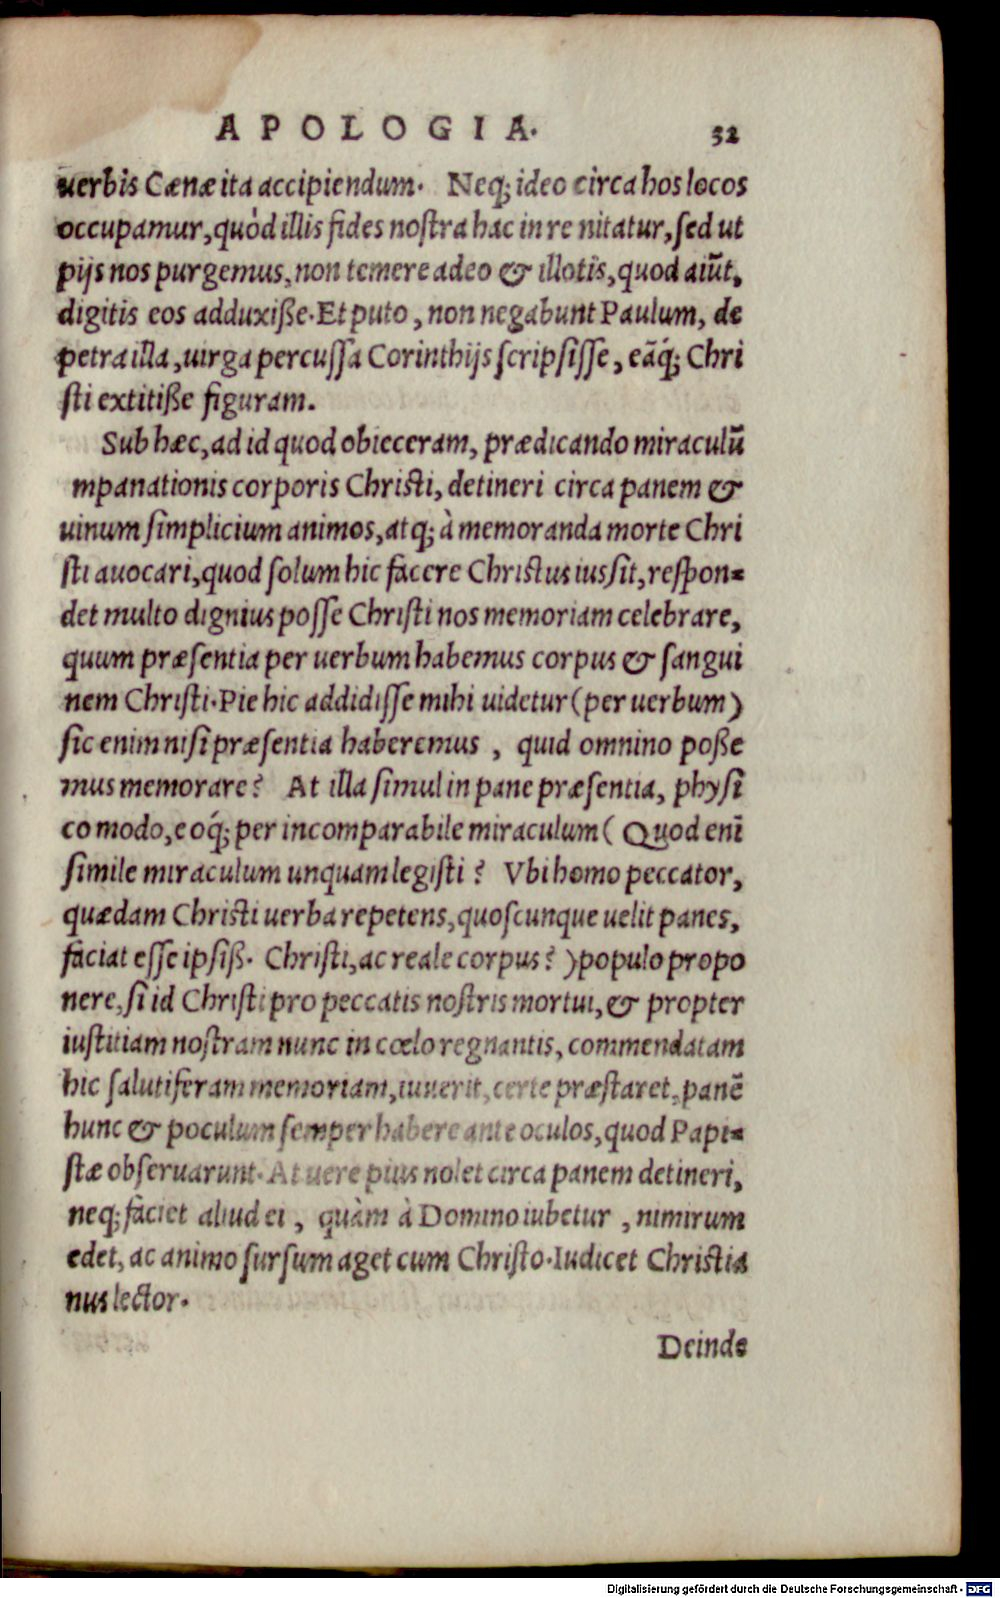 APOLOGIA. 32
uerbis Cænæ ita accipiendum. Neq; ideo circa hos locos
occupamur, quòd illis fides noſtra hac in re nitatur, ſed ut
pijs nos purgemus, non temere adeo & illotis, quod aiūt,
digitis eos adduxiße. Et puto, non negabunt Paulum, de
petra illa, uirga percuſſa Corinthijs ſcripſiſſe, eāq́; Chri
ſti extitiße figuram.
Sub hæc, ad id quod obieceram, prædicando miraculū
mpanationis corporis Chriſti, detineri circa panem &
uinum ſimplicium animos, atq; à memoranda morte Chri
ſti auocari, quod ſolum hic facere Chriſtus iusſit, reſpon=
det multo dignius poſſe Chriſti nos memoriam celebrare,
quum præſentia per uerbum habemus corpus & ſangui
nem Chriſti. Pie hic addidiſſe mihi uidetur (per uerbum)
ſic enim niſi præſentia haberemus, quid omnino poße
mus memorare? At illa ſimul in pane præſentia, phyſi
co modo, eoq́; per incomparabile miraculum (Quod enī
ſimile miraculum unquam legiſti? Vbi homo peccator,
quædam Chriſti uerba repetens, quoſcunque uelit panes,
faciat eſſe ipſiß. Chriſti, ac reale corpus?) populo propo
nere, ſi id Chriſti pro peccatis noſtris mortui, & propter
iuſtitiam noſtram nunc in cœlo regnantis, commendatam
hic ſalutiferam memoriam, iuuerit, certe præſtaret, panē
hunc & poculum ſemper habere ante oculos, quod Papi=
ſtæ obſeruarunt. At uere pius nolet circa panem detineri,
neq; faciet aliud ei, quàm à Domino iubetur, nimirum
edet, ac animo ſurſum aget cum Chriſto. Iudicet Chriſtia
nus lector.
Deinde
Digitalisierung gefördert durch die Deutsche Forschungsgemeinschaft - DFG